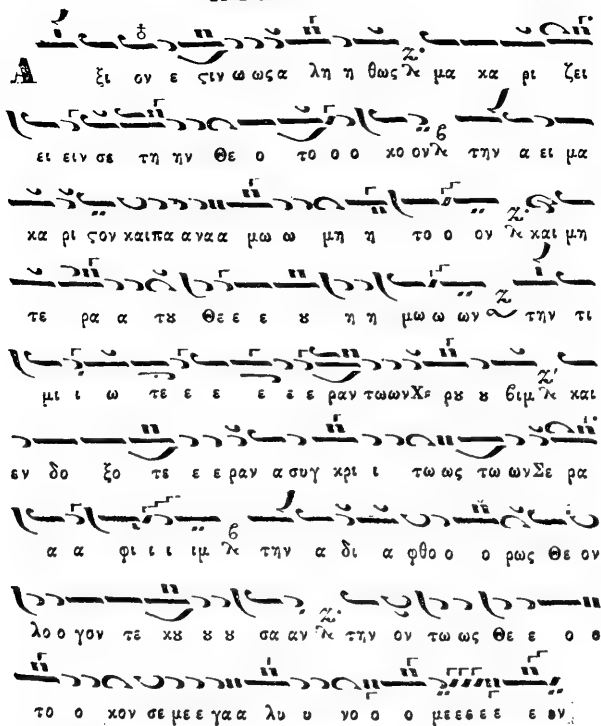 Α ξι ον ε ϛιν ω ως α λη η θως μα κα ρι ζει
ει ειν σε τη ην Θε ο το ο ο κο ον την α ει μα
κα ρι ϛον και πα α να α μω ω μη η το ο ον και μη
τε ρα α τȣ Θε ε ε ȣ η η μω ω ων την τι
μι ι ω τε ε ε ε ε ε ραν τω ων Χε ρȣ ȣ βιμ και
εν δο ξο τε ε ε ραν α συγ κρι ι τω ως τω ων Σε ρα
α α φι ι ι ιμ την α δι α φθο ο ο ρως Θε ον
λο ο γον τε κȣ ȣ ȣ σα αν την ον τω ως Θε ε ο ο
το ο κον σε με ε γα α λυ υ νο ο ο με ε ε ε ε ε εν